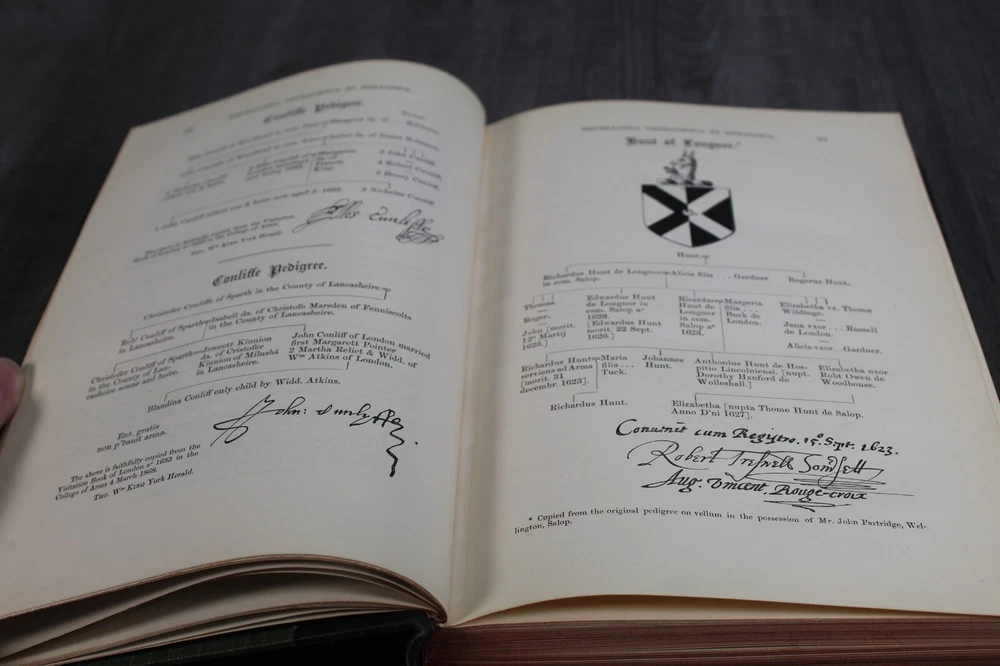 MISCELLANEA GENEALOGICA ET HERALDICA.
Cunliffe Pedigree.
3 John Cunliff.
4 Robert Cunliff.
5 Henry Cunliff.
2 Nicholas Cunliff.
1 John Cunliff eldest son & heire now aged
Ellis Cunliffe
Tho. Wm King York Herald.
Conliffe Pedigree.
Christofer Conliff of Sparth in the County of Lancasheire.
Robt Conliff of Sparth=Isabell da. of Christofe Marsden of Fenniscolts
in Lancasheire. in the County of Lancasheire.
Christofer Conliff of Sparth=Jennett Kinnion
in the County of Lan- da. of Cristofer
casheire sonne and heire. Kinnion of
in Lancasheire.
John Conliff of London married
first Margarett Pointer,
2 Martha Relict & Widd. of
Wm Atkins of London.
Blandina Conliff only child by Widd. Atkins.
Ent. gratis
non p'bauit arma.
John: Cunlyffe.
The above is faithfully copied from the
Visitation Book of London ao 1633 in the
College of Arms 4 March 1868.
Tho. Wm King York Herald.
MISCELLANEA GENEALOGICA ET HERALDICA.
Hunt of Longnor.*
Hunt.
Richardus Hunt de Longnor=Alicia filia ... Gardner
in com. Salop.
Rogerus Hunt.
Thomas.
Roger.
John [morit.
12o Martij
1625.]
Edwardus Hunt
de Longnor in
com. Salop ao
1623.
[Edwardus Hunt
morit. 22 Sept.
1626.]
Ricardus=Margeria
Hunt de filia ...
Longnor Buck de
in com. London.
Salop ao
1623.
Elizabetha vx. Thomæ
Wildinge.
Jana vxor ... Russell
de London.
Alicia vxor ... Gardner.
Richardus Hunt=Maria
serviens ad Arma filia ...
[morit. 31 Tuck.
decembr. 1623].
Johannes
Hunt.
Anthonius Hunt de Hos-
pitio Lincolniensi. [nupt.
Dorothy Hanford de
Wolleshall.]
Elizabetha vxor
Robt Owen de
Woodhouse.
Richardus Hunt.
Elizabetha [nupta Thome Hunt de Salop.
Anno D'ni 1627].
Convenit cum Registro. 15o Sept. 1623.
Robert Treswell Somsett
Aug. Vincent. Rouge-croix
* Copied from the original pedigree on vellum in the possession of Mr. John Partridge, Wel-
lington, Salop.